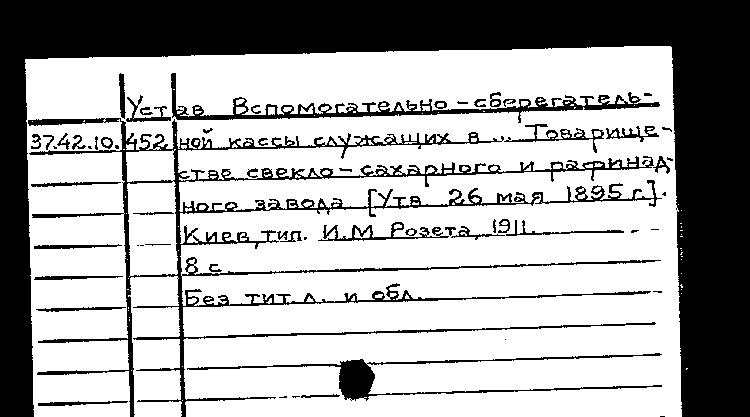 Устав Вспомогательно-сберегатель-
37.42.10. 452 ной кассы служащих в ... Товарище-
стве свекло-сахарного и рафинад-
ного завода [Утв. 26 мая 1895 г.].
Киев, тип. И.М Розета, 1911.
8 с.
Без тит. л. и обл.